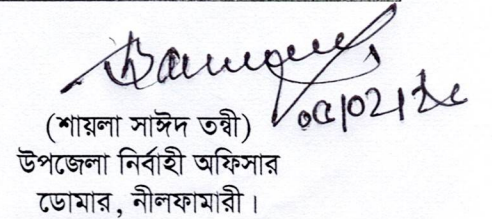 ০৫/০2/২৫
(শায়লা সাঈদ তন্বী)
উপজেলা নির্বাহী অফিসার
ডোমার, নীলফামারী।